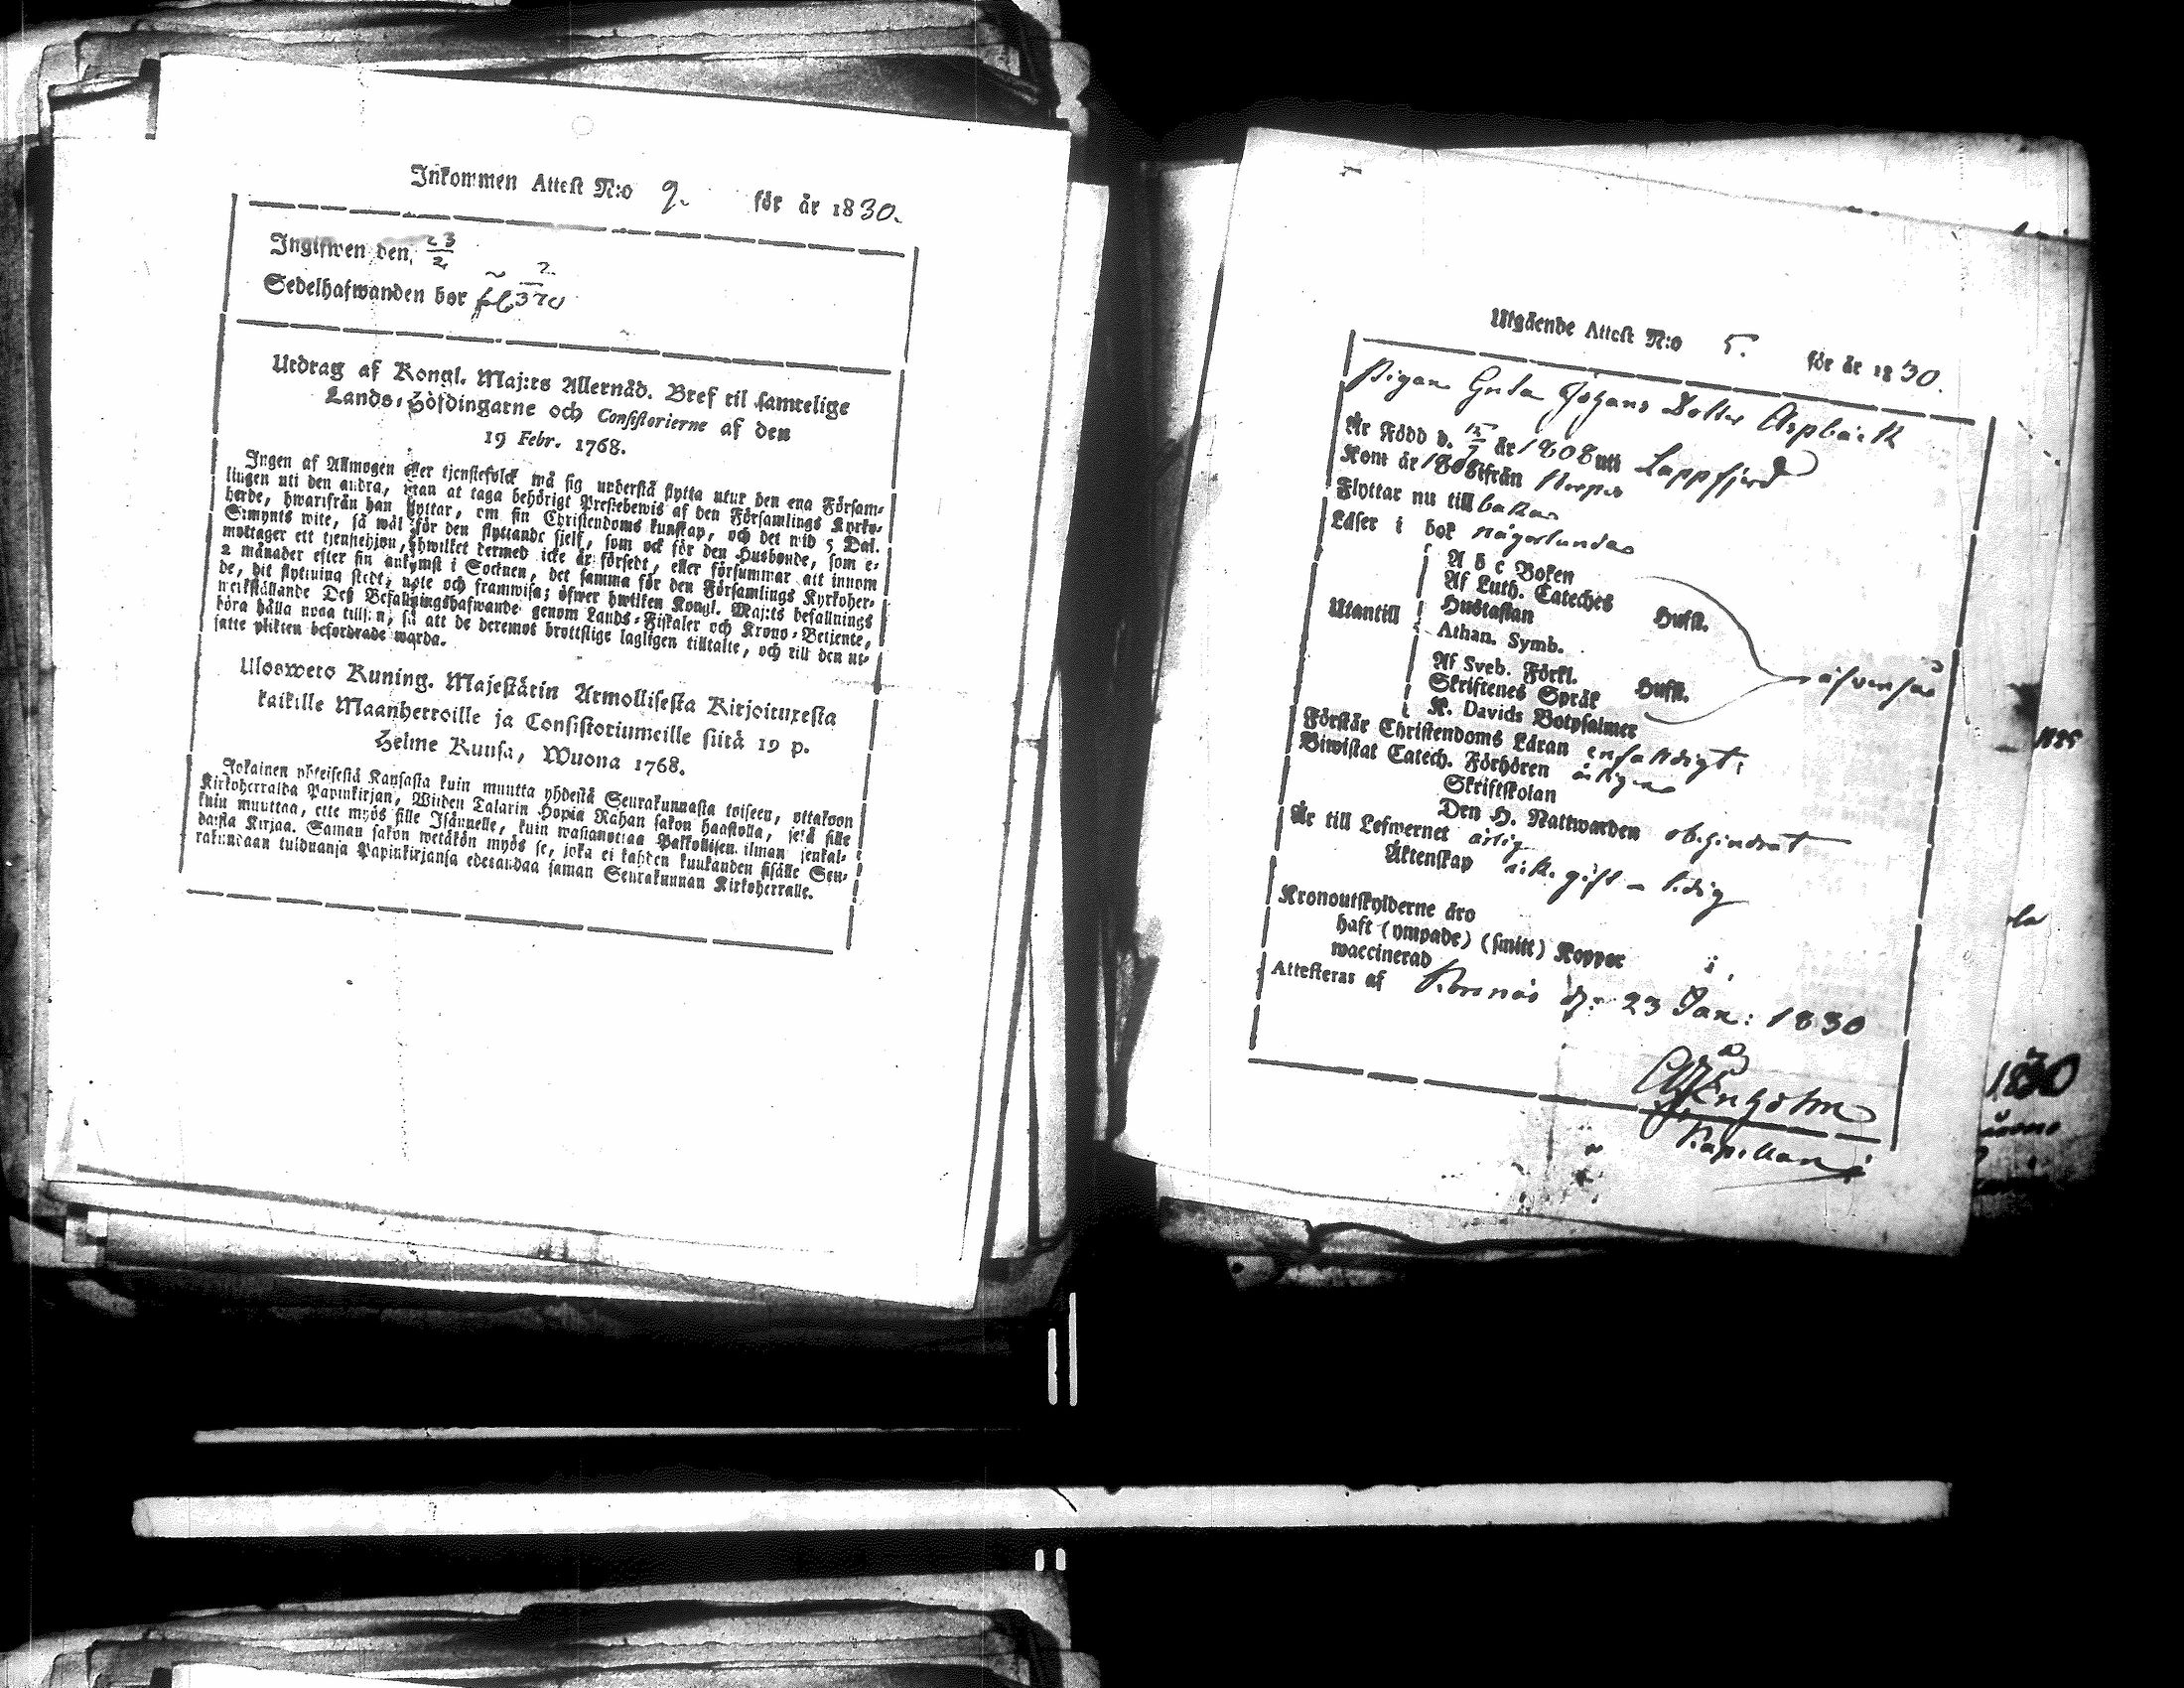 Inkommen Attest N:o 9. för år 1830.
Ingifwen den 23/2
Sedelhafwanden bor
Utdrag af Kongl. Maj:ts Allernåd. Bref til samtelige
Lands-Höfdingarne och Consistorierne af den
19 Febr. 1768.
Ingen af Allmogen eller tjenstefolck må sig understå flytta utur den ena Försam-
lingen uti den andra, utan at taga behörigt Prestebewis af den Församlings Kyrko-
herde, hwarifrån han flyttar, om sin Christendoms kunskap, och det wid 5 Dal.
S:mynts wite, så wäl för den flyttande sjelf, som ock för den Husbonde, som e-
mottager ett tjenstehjon, hwilket dermed icke är försedt, eller försummar att innom
2 månader efter sin ankomst i Socknen, det samma för den Församlings Kyrkoher-
de, dit flyttning skedt, upte och framwisa; öfwer hwilken Kongl. Maj:ts befallnings
werkställande Deß Befallningshafwande genom Lands-Fiskaler och Krono-Betjente,
böra hålla noga tillsyn, så att de deremot brottslige lagligen tilltalte, och till den ut-
satte plikten befordrade warda.
Uloswero Kuning. Majestätin Armollisesta Kirjoituxesta
kaikille Maanherroille ja Consistoriumeille siitä 19 p.
Helme Kuusa, Wuona 1768.
Jokainen yhteisestä Kansasta kuin muutta yhdestä Seurakunnasta toiseen, ottakoon
Kirkoherralda Papinkirjan, Wiiden Talarin Hopia Rahan sakon haastolla, sekä sille
kuin muuttaa, ette myös sille Isännelle, kuin wastanottaa Palkollisen ilman senkal-
daista Kirjaa. Saman sakon wetäkön myös se, joka ei kahden kuukauden sisälle Seu-
rakundaan tulduanja Papinkirjansa edesandaa saman Seurakunnan Kirkoherralle.
Utgående Attest N:o 5. för år 1830.
Pigan Greta Johans Dotter Aspbäck
Är Född d. år 1808 uti Lappfjerd
Kom år 1808 ifrån
Flyttar nu till
Läser i bok någorlunda
A b c Boken
Af Luth. Cateches Hufst.
Hustaflan
Utantill Athan. Symb.
Af Sveb. Förkl. Hufst.
Skriftenes Språk
K. Davids Botpsalmer
Förstår Christendoms Läran enfaldigt
Biwistat Catech. Förhören årligen
Skriftskolan
Den H. Nattwarden obehindrat
Är till Lefwernet ärlig
Äktenskap gift – ledig
Kronoutskylderne äro
haft (ympade) (smitt) Koppor
waccinerad
Attesteras af Korsnäs d: 23 Jan: 1830
Enholm
Kapellan
1830